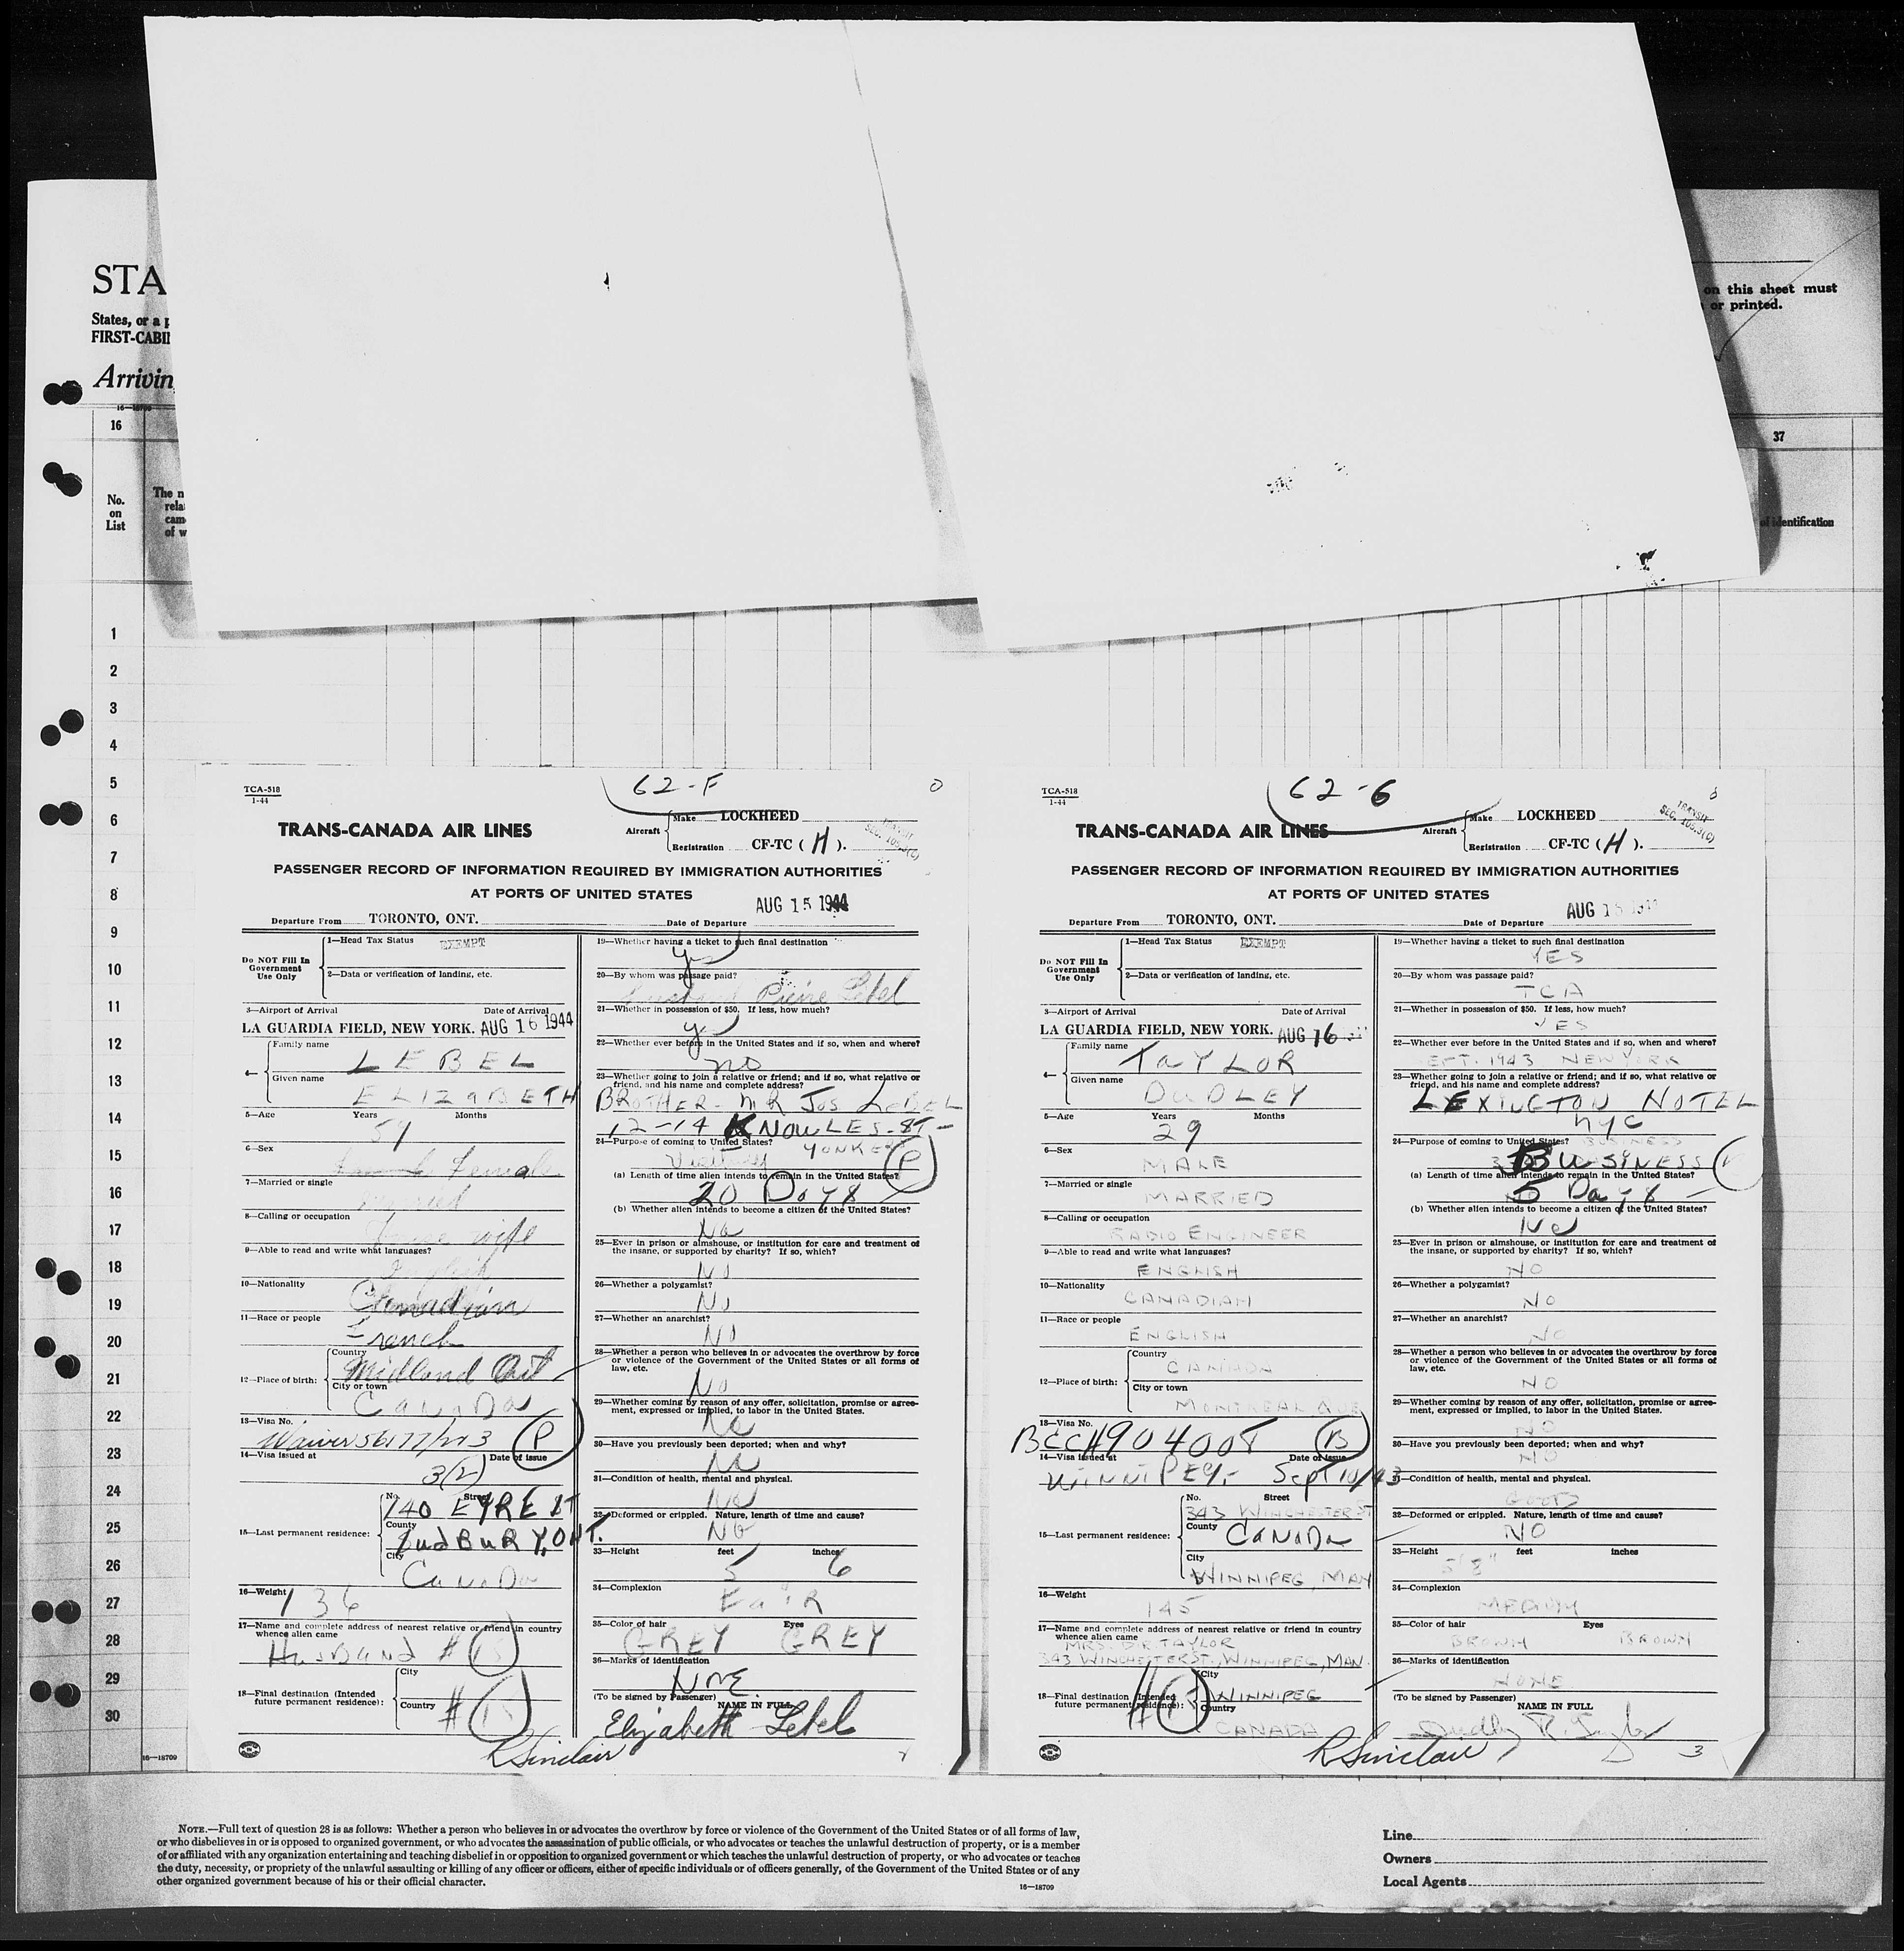 STA
States, or a p
FIRST-CABI
Arrivin
on this sheet must
or printed.
16—18709
16
37
No.
on
List
The n
rela
cam
of w
of identification
1
2
3
4
5
6
7
8
9
10
11
12
13
14
15
16
17
18
19
20
21
22
23
24
25
26
27
28
29
30
16—18709
62-F
TCA-518
1-44
TRANS-CANADA AIR LINES
Aircraft
Make LOCKHEED
Registration CF-TC ( H ).
TRANSIT
SEC. 105.3(C)
PASSENGER RECORD OF INFORMATION REQUIRED BY IMMIGRATION AUTHORITIES
AT PORTS OF UNITED STATES
AUG 15 1944
Departure From TORONTO, ONT. Date of Departure
Do NOT Fill In
Government
Use Only
1—Head Tax Status EXEMPT
2—Data or verification of landing, etc.
3—Airport of Arrival Date of Arrival
LA GUARDIA FIELD, NEW YORK. AUG 16 1944
4—
Family name
LEBEL
Given name
ELIZABETH
5—Age Years Months
6—Sex
Female
7—Married or single
married
8—Calling or occupation
wife
9—Able to read and write what languages?
English
10—Nationality
Canadian
11—Race or people
French
12—Place of birth:
Country
Midland Ont
City or town
Canada
13—Visa No.
Waiver P
14—Visa issued at Date of issue
3(2)
15—Last permanent residence:
No. Street
140 EYRE ST
County
SudBURY, ONT.
City
CanaDa
16—Weight
136
17—Name and complete address of nearest relative or friend in country
whence alien came
HusBand # 15
18—Final destination (Intended
future permanent residence):
City
Country
# 15
19—Whether having a ticket to such final destination
yes
20—By whom was passage paid?
husband Pierre Lebel
21—Whether in possession of $50. If less, how much?
yes
22—Whether ever before in the United States and if so, when and where?
no
23—Whether going to join a relative or friend; and if so, what relative or
friend, and his name and complete address?
BROTHER - MR JOS LeBEL
12-14 KNOWLES-ST-
24—Purpose of coming to United States?
YONKE
P
(a) Length of time alien intends to remain in the United States?
20 Days
(b) Whether alien intends to become a citizen of the United States?
No
25—Ever in prison or almshouse, or institution for care and treatment of
the insane, or supported by charity? If so, which?
No
26—Whether a polygamist?
No
27—Whether an anarchist?
No
28—Whether a person who believes in or advocates the overthrow by force
or violence of the Government of the United States or all forms of
law, etc.
No
29—Whether coming by reason of any offer, solicitation, promise or agree-
ment, expressed or implied, to labor in the United States.
No
30—Have you previously been deported; when and why?
No
31—Condition of health, mental and physical.
32—Deformed or crippled. Nature, length of time and cause?
NO
33—Height feet inches
5 6
34—Complexion
FaiR
35—Color of hair Eyes
GREY GREY
36—Marks of identification
NONE.
(To be signed by Passenger) NAME IN FULL
Elizabeth Lebel
R Sinclair
62-6
TCA-518
1-44
TRANS-CANADA AIR LINES
Aircraft
Make LOCKHEED
Registration CF-TC ( H ).
TRANSIT
SEC. 105.3(C)
PASSENGER RECORD OF INFORMATION REQUIRED BY IMMIGRATION AUTHORITIES
AT PORTS OF UNITED STATES
AUG 15 1944
Departure From TORONTO, ONT. Date of Departure
Do NOT Fill In
Government
Use Only
1—Head Tax Status EXEMPT
2—Data or verification of landing, etc.
3—Airport of Arrival Date of Arrival
LA GUARDIA FIELD, NEW YORK. AUG 16
4—
Family name
TAYLOR
Given name
DUDLEY
5—Age Years Months
29
6—Sex
MALE
7—Married or single
MARRIED
8—Calling or occupation
RADIO ENGINEER
9—Able to read and write what languages?
ENGLISH
10—Nationality
CANADIAN
11—Race or people
ENGLISH
12—Place of birth:
Country
CANADA
City or town
MONTREAL QUE
13—Visa No.
BCC#904005 B
14—Visa issued at Date of issue
WINNIPEG,- Sept 10/43
15—Last permanent residence:
No. Street
343 WINCHESTER ST
County
CaNaDa
City
WINNIPEG, MAN
16—Weight
145
17—Name and complete address of nearest relative or friend in country
whence alien came
MRS. D.R. TAYLOR
343 WINCHESTER ST., WINNIPEG, MAN.
18—Final destination (Intended
future permanent residence):
City
WINNIPEG
Country
CANADA
#15
19—Whether having a ticket to such final destination
YES
20—By whom was passage paid?
TCA
21—Whether in possession of $50. If less, how much?
YES
22—Whether ever before in the United States and if so, when and where?
SEPT. 1943 NEW YORK
23—Whether going to join a relative or friend; and if so, what relative or
friend, and his name and complete address?
LEXINGTON HOTEL
NYC
24—Purpose of coming to United States? BUSINESS
BUSINESS
(a) Length of time alien intends to remain in the United States?
5 Days
(b) Whether alien intends to become a citizen of the United States?
No
25—Ever in prison or almshouse, or institution for care and treatment of
the insane, or supported by charity? If so, which?
NO
26—Whether a polygamist?
NO
27—Whether an anarchist?
NO
28—Whether a person who believes in or advocates the overthrow by force
or violence of the Government of the United States or all forms of
law, etc.
NO
29—Whether coming by reason of any offer, solicitation, promise or agree-
ment, expressed or implied, to labor in the United States.
NO
30—Have you previously been deported; when and why?
NO
31—Condition of health, mental and physical.
GOOD
32—Deformed or crippled. Nature, length of time and cause?
NO
33—Height feet inches
5'8"
34—Complexion
MEDIUM
35—Color of hair Eyes
BROWN BROWN
36—Marks of identification
NONE
(To be signed by Passenger) NAME IN FULL
Dudley R. Taylor
R Sinclair
3
NOTE.—Full text of question 28 is as follows: Whether a person who believes in or advocates the overthrow by force or violence of the Government of the United States or of all forms of law,
or who disbelieves in or is opposed to organized government, or who advocates the assassination of public officials, or who advocates or teaches the unlawful destruction of property, or is a member
of or affiliated with any organization entertaining and teaching disbelief in or opposition to organized government or which teaches the unlawful destruction of property, or who advocates or teaches
the duty, necessity, or propriety of the unlawful assaulting or killing of any officer or officers, either of specific individuals or of officers generally, of the Government of the United States or of any
other organized government because of his or their official character.
16—18709
Line
Owners
Local Agents